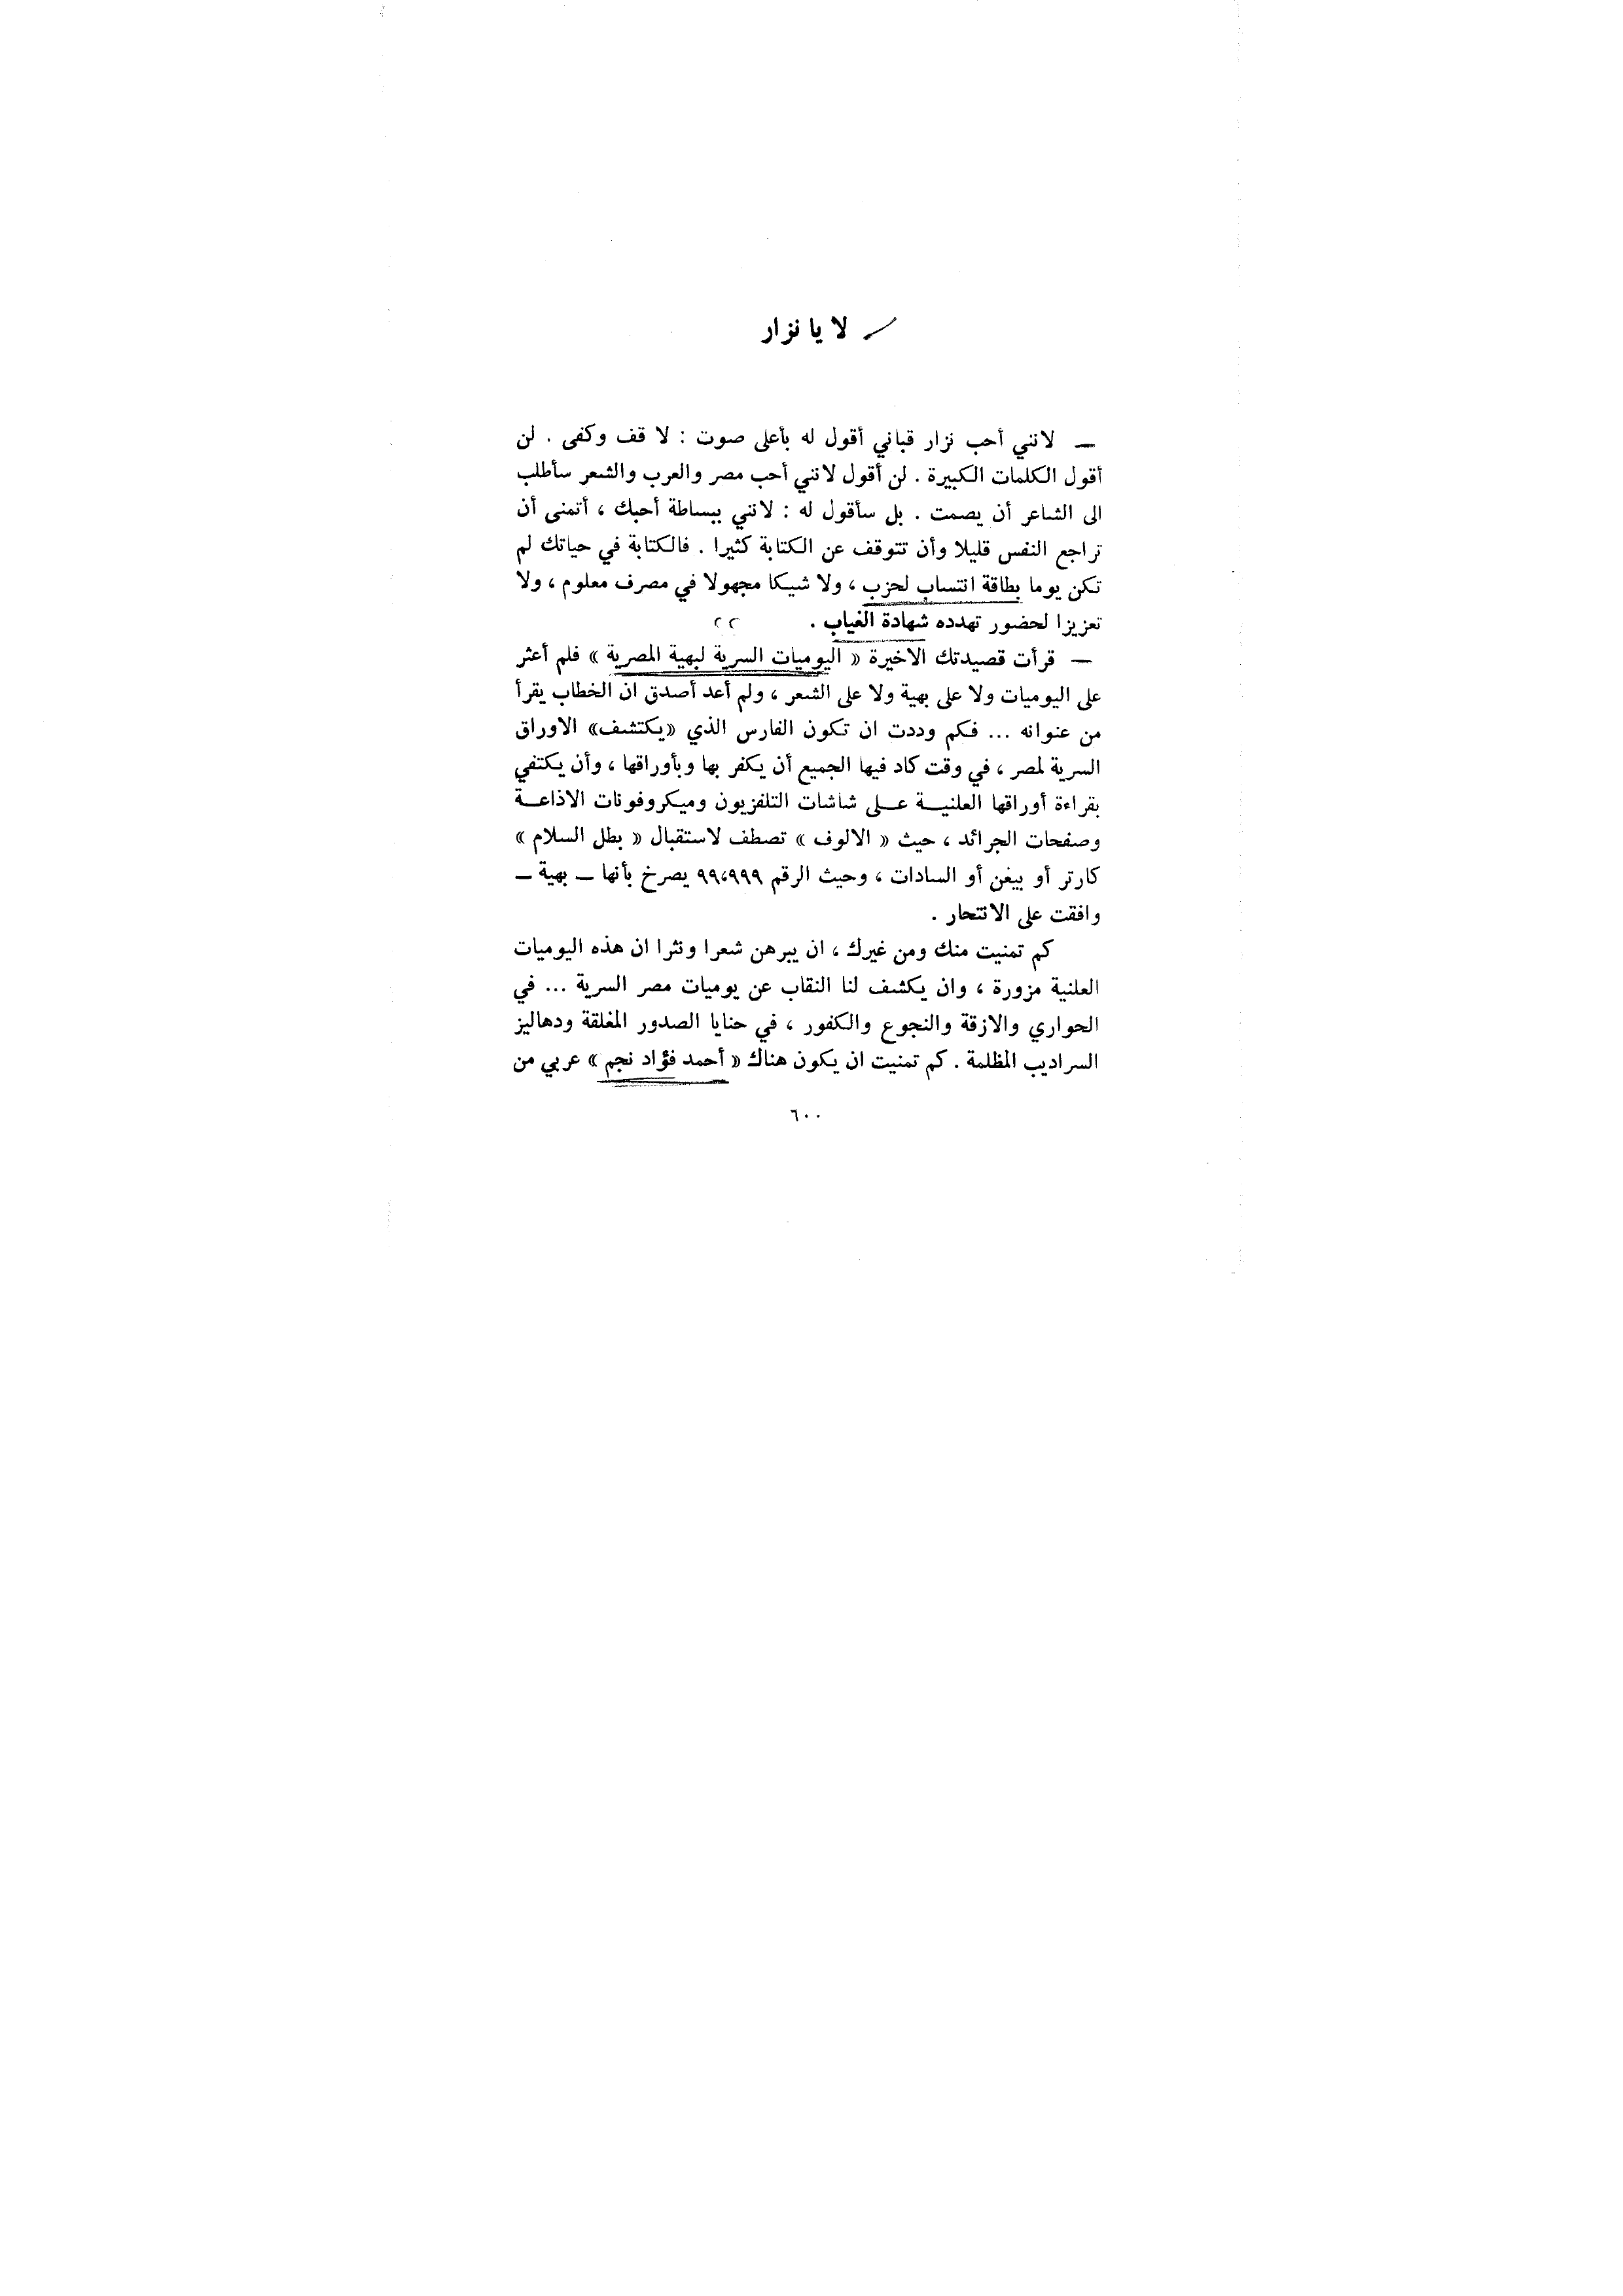 لا يا نزار
ـ لانني أحب نزار قباني أقول له بأعلى صوت : لا قف وكفى . لن
أقول الكلمات الكبيرة . لن أقول لانني أحب مصر والعرب والشعر سأطلب
الى الشاعر أن يصمت . بل سأقول له : لانني ببساطة أحبك ، أتمنى أن
تراجع النفس قليلا وأن تتوقف عن الكتابة كثيرا . فالكتابة في حياتك لم
تكن يوما بطاقة انتساب لحزب ، ولا شيكا مجهولا في مصرف معلوم ، ولا
تعزيزا لحضور تهدده شهادة الغياب .
ـ قرأت قصيدتك الاخيرة « اليوميات السرية لبهية المصرية » فلم أعثر
على اليوميات ولا على بهية ولا على الشعر ، ولم أعد أصدق ان الخطاب يقرأ
من عنوانه ... فكم وددت ان تكون الفارس الذي «يكتشف» الاوراق
السرية لمصر ، في وقت كاد فيها الجميع أن يكفر بها وبأوراقها ، وأن يكتفي
بقراءة أوراقها العلنيـة عـلى شاشات التلفزيون وميكروفونات الاذاعـة
وصفحات الجرائد ، حيث « الالوف » تصطف لاستقبال « بطل السلام »
كارتر أو بيغن أو السادات ، وحيث الرقم ٩٩،٩٩٩ يصرخ بأنها ـ بهية ـ
وافقت على الانتحار .
كم تمنيت منك ومن غيرك ، ان يبرهن شعرا ونثرا ان هذه اليوميات
العلنية مزورة ، وان يكشف لنا النقاب عن يوميات مصر السرية ... في
الحواري والازقة والنجوع والكفور ، في حنايا الصدور المغلقة ودهاليز
السراديب المظلمة . كم تمنيت ان يكون هناك « أحمد فؤاد نجم » عربي من
٦٠٠